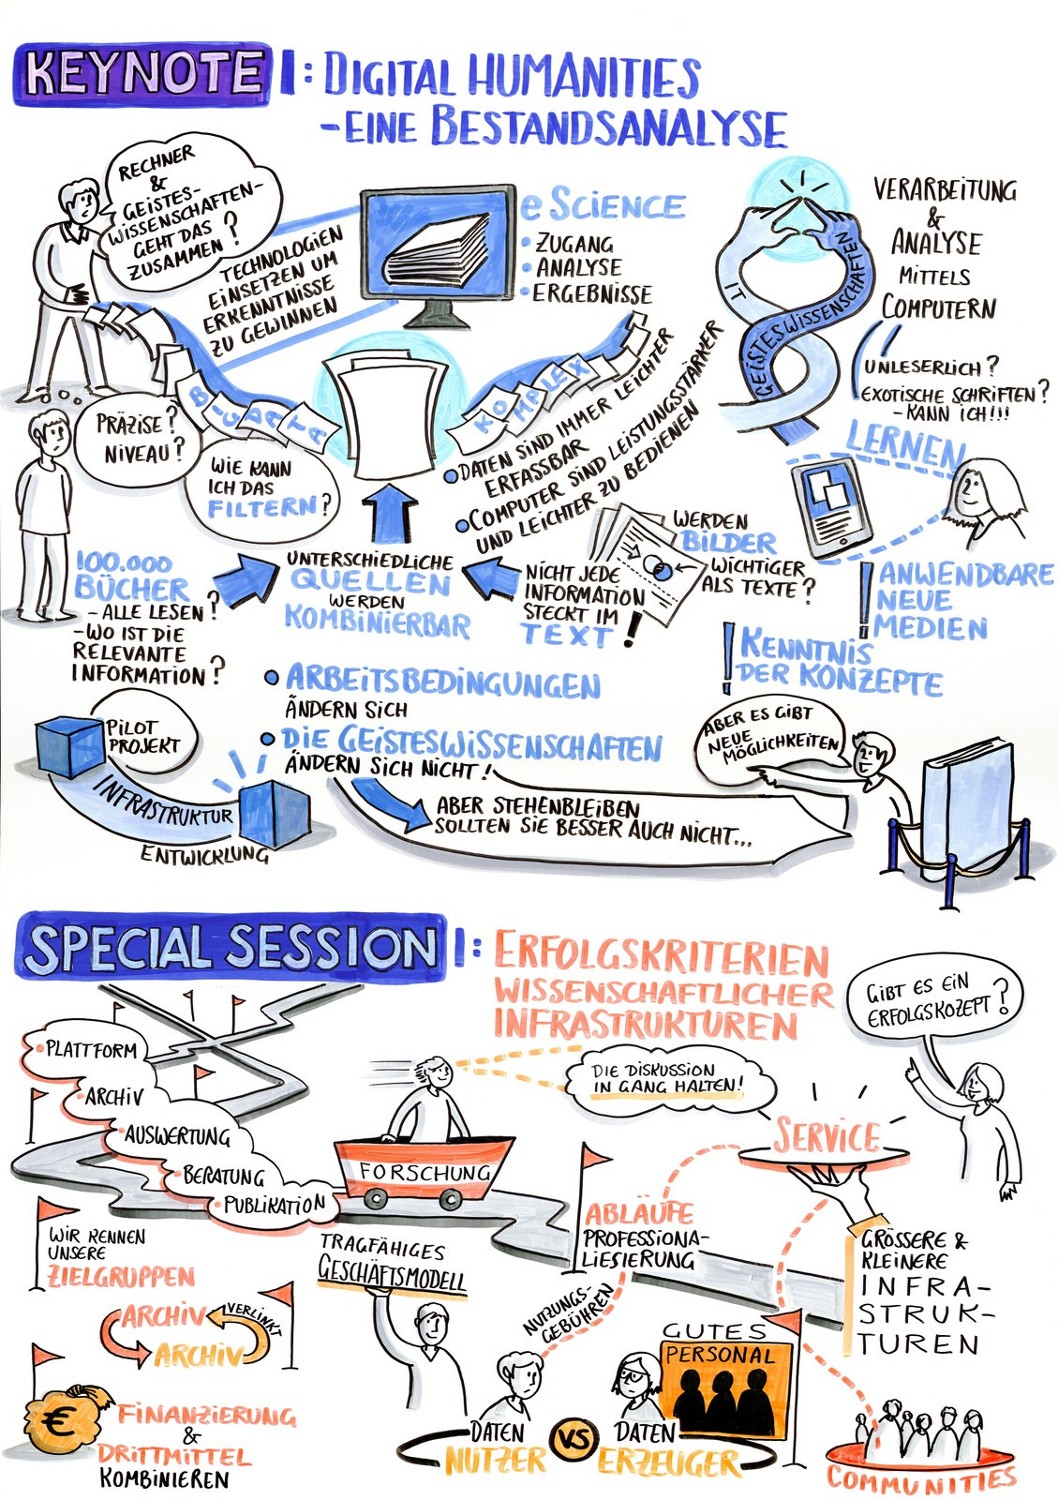 KEYNOTE I: DIGITAL HUMANITIES
- EINE BESTANDSANALYSE
RECHNER
&
GEISTES-
WISSENSCHAFTEN-
GEHT DAS
ZUSAMMEN?
TECHNOLOGIEN
EINSETZEN UM
ERKENNTNISSE
ZU GEWINNEN
e SCIENCE
• ZUGANG
• ANALYSE
• ERGEBNISSE
IT
GEISTESWISSENSCHAFTEN
VERARBEITUNG
&
ANALYSE
MITTELS
COMPUTERN
UNLESERLICH?
EXOTISCHE SCHRIFTEN?
- KANN ICH!!!
BIG DATA
KOMPLEX
PRÄZISE?
NIVEAU?
WIE KANN
ICH DAS
FILTERN?
• DATEN SIND IMMER LEICHTER
ERFASSBAR
• COMPUTER SIND LEISTUNGSSTÄRKER
UND LEICHTER ZU BEDIENEN
LERNEN
100.000
BÜCHER
- ALLE LESEN?
- WO IST DIE
RELEVANTE
INFORMATION?
UNTERSCHIEDLICHE
QUELLEN
WERDEN
KOMBINIERBAR
NICHT JEDE
INFORMATION
STECKT IM
TEXT!
WERDEN
BILDER
WICHTIGER
ALS TEXTE?
! ANWENDBARE
NEUE
MEDIEN
! KENNTNIS
DER KONZEPTE
• ARBEITSBEDINGUNGEN
ÄNDERN SICH
• DIE GEISTESWISSENSCHAFTEN
ÄNDERN SICH NICHT!
ABER STEHENBLEIBEN
SOLLTEN SIE BESSER AUCH NICHT...
PILOT
PROJEKT
INFRASTRUKTUR
ENTWICKLUNG
ABER ES GIBT
NEUE
MÖGLICHKEITEN
SPECIAL SESSION I: ERFOLGSKRITERIEN
WISSENSCHAFTLICHER
INFRASTRUKTUREN
GIBT ES EIN
ERFOLGSKOZEPT?
• PLATTFORM
• ARCHIV
• AUSWERTUNG
• BERATUNG
• PUBLIKATION
FORSCHUNG
DIE DISKUSSION
IN GANG HALTEN!
SERVICE
WIR KENNEN
UNSERE
ZIELGRUPPEN
ARCHIV
VERLINKT
ARCHIV
TRAGFÄHIGES
GESCHÄFTSMODELL
ABLÄUFE
PROFESSIONA-
LIESIERUNG
NUTZUNGS-
GEBÜHREN
GRÖSSERE &
KLEINERE
INFRA-
STRUK-
TUREN
GUTES
PERSONAL
€
FINANZIERUNG
&
DRITTMITTEL
KOMBINIEREN
DATEN
NUTZER
VS
DATEN
ERZEUGER
COMMUNITIES